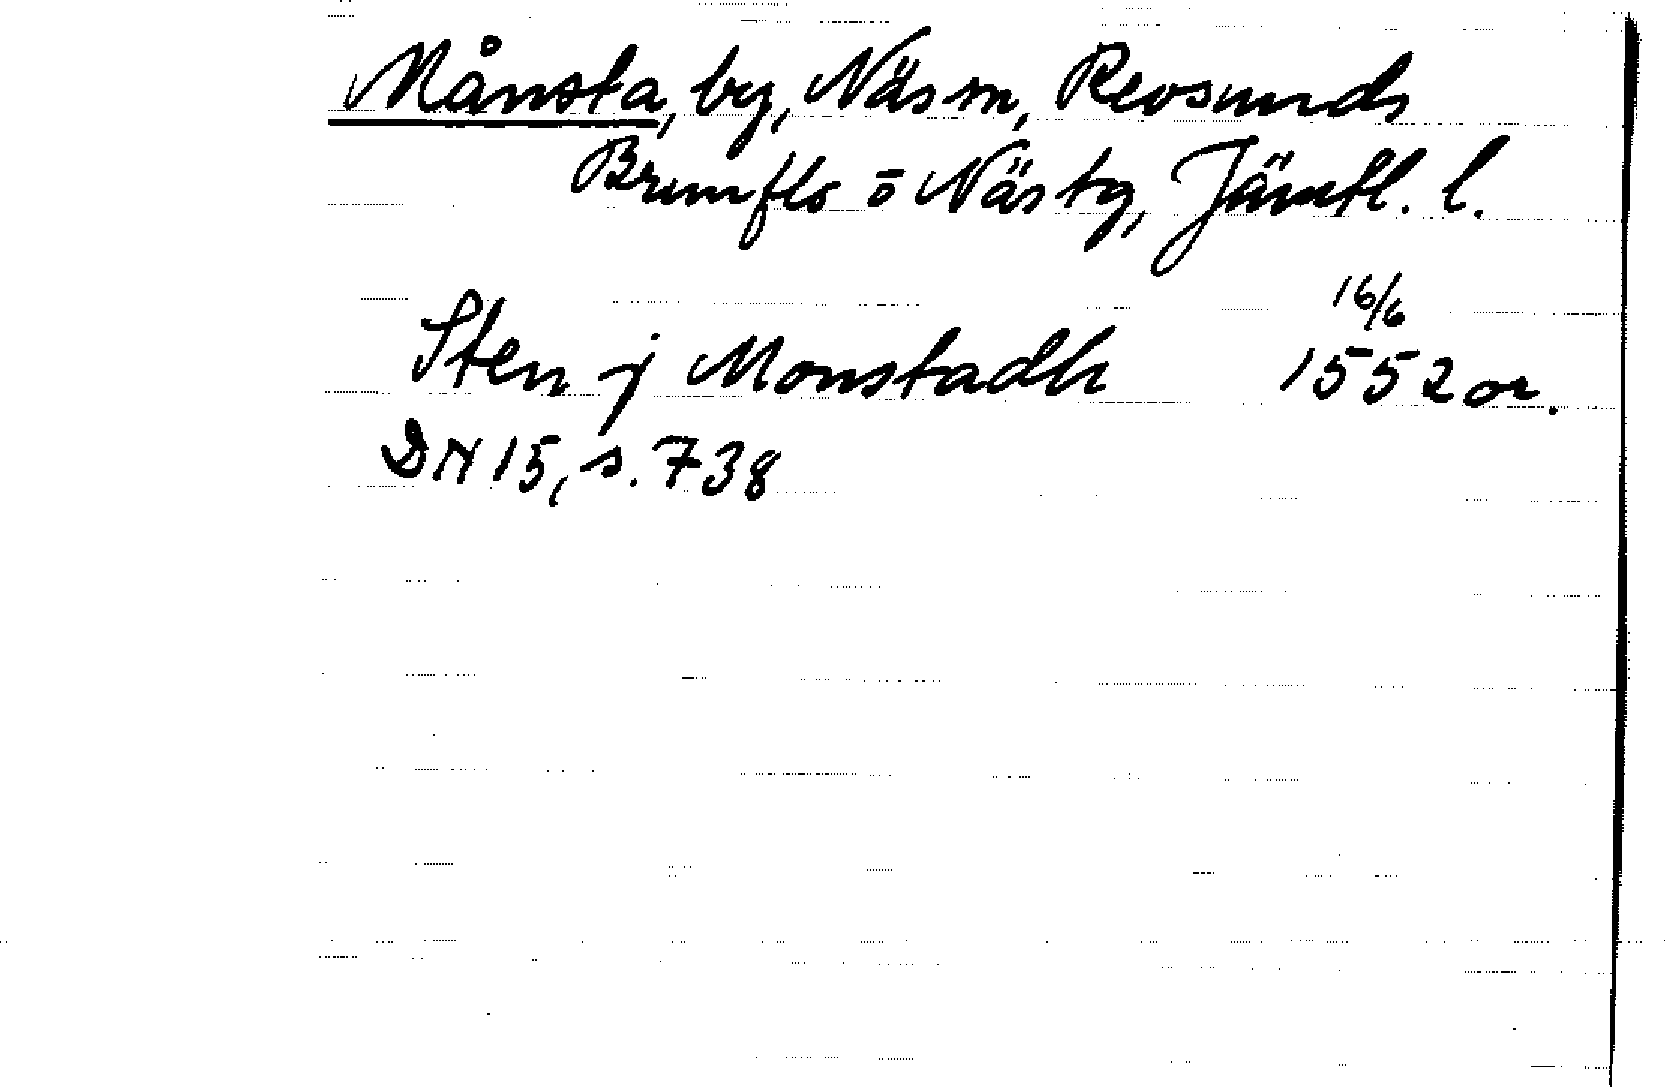 Månsta, by, Näs sn, Revsunds
Brunflo o Näs tg, Jämtl. l.
16/6
Sten j Monstadh 1552 or.
DN 15, s. 738